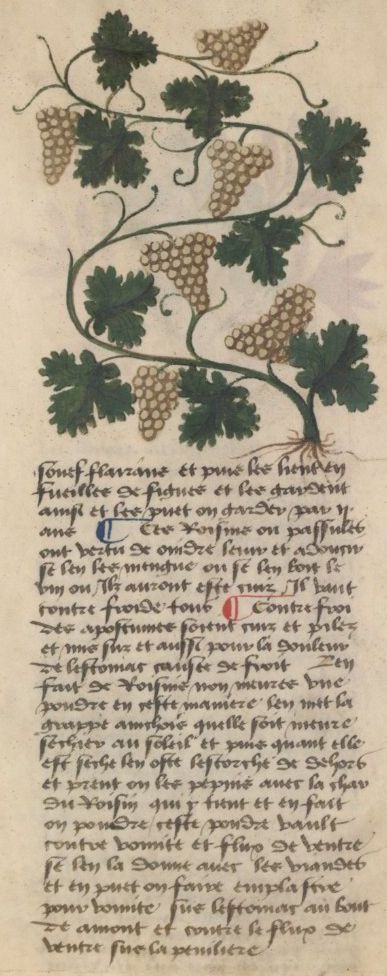 souef flairans et puis les lient en
fueilles de figues et les gardent
ainsi et les puet on garder par ii
ans ¶ Ces Roisins ou passules
ont vertu de oindre leur et adoucir
se len les mengue ou se len boit le
vin ou ilz auront este cuiz Il vault
contre froide tous ¶ Contre froi
des apostumes soient cuiz et pilez
et mis sur et aussi pour la douleur
de lestomac causee de froit Len
fait de Roisins non meures une
poudre en ceste maniere len met la
grappe aincois quelle soit meure
sechier au soleil et puis quant elle
est seche len oste lescorche de dehors
et prent on les pepins avec la char
du Roisin qui y tient et en fait
on poudre ceste poudre vault
contre vomite et flux de ventre
se len la donne avec les viandes
et en puet on faire emplastre
pour vomite sus lestomac au bout
de amont et contre le flux de
ventre sus la peniliere